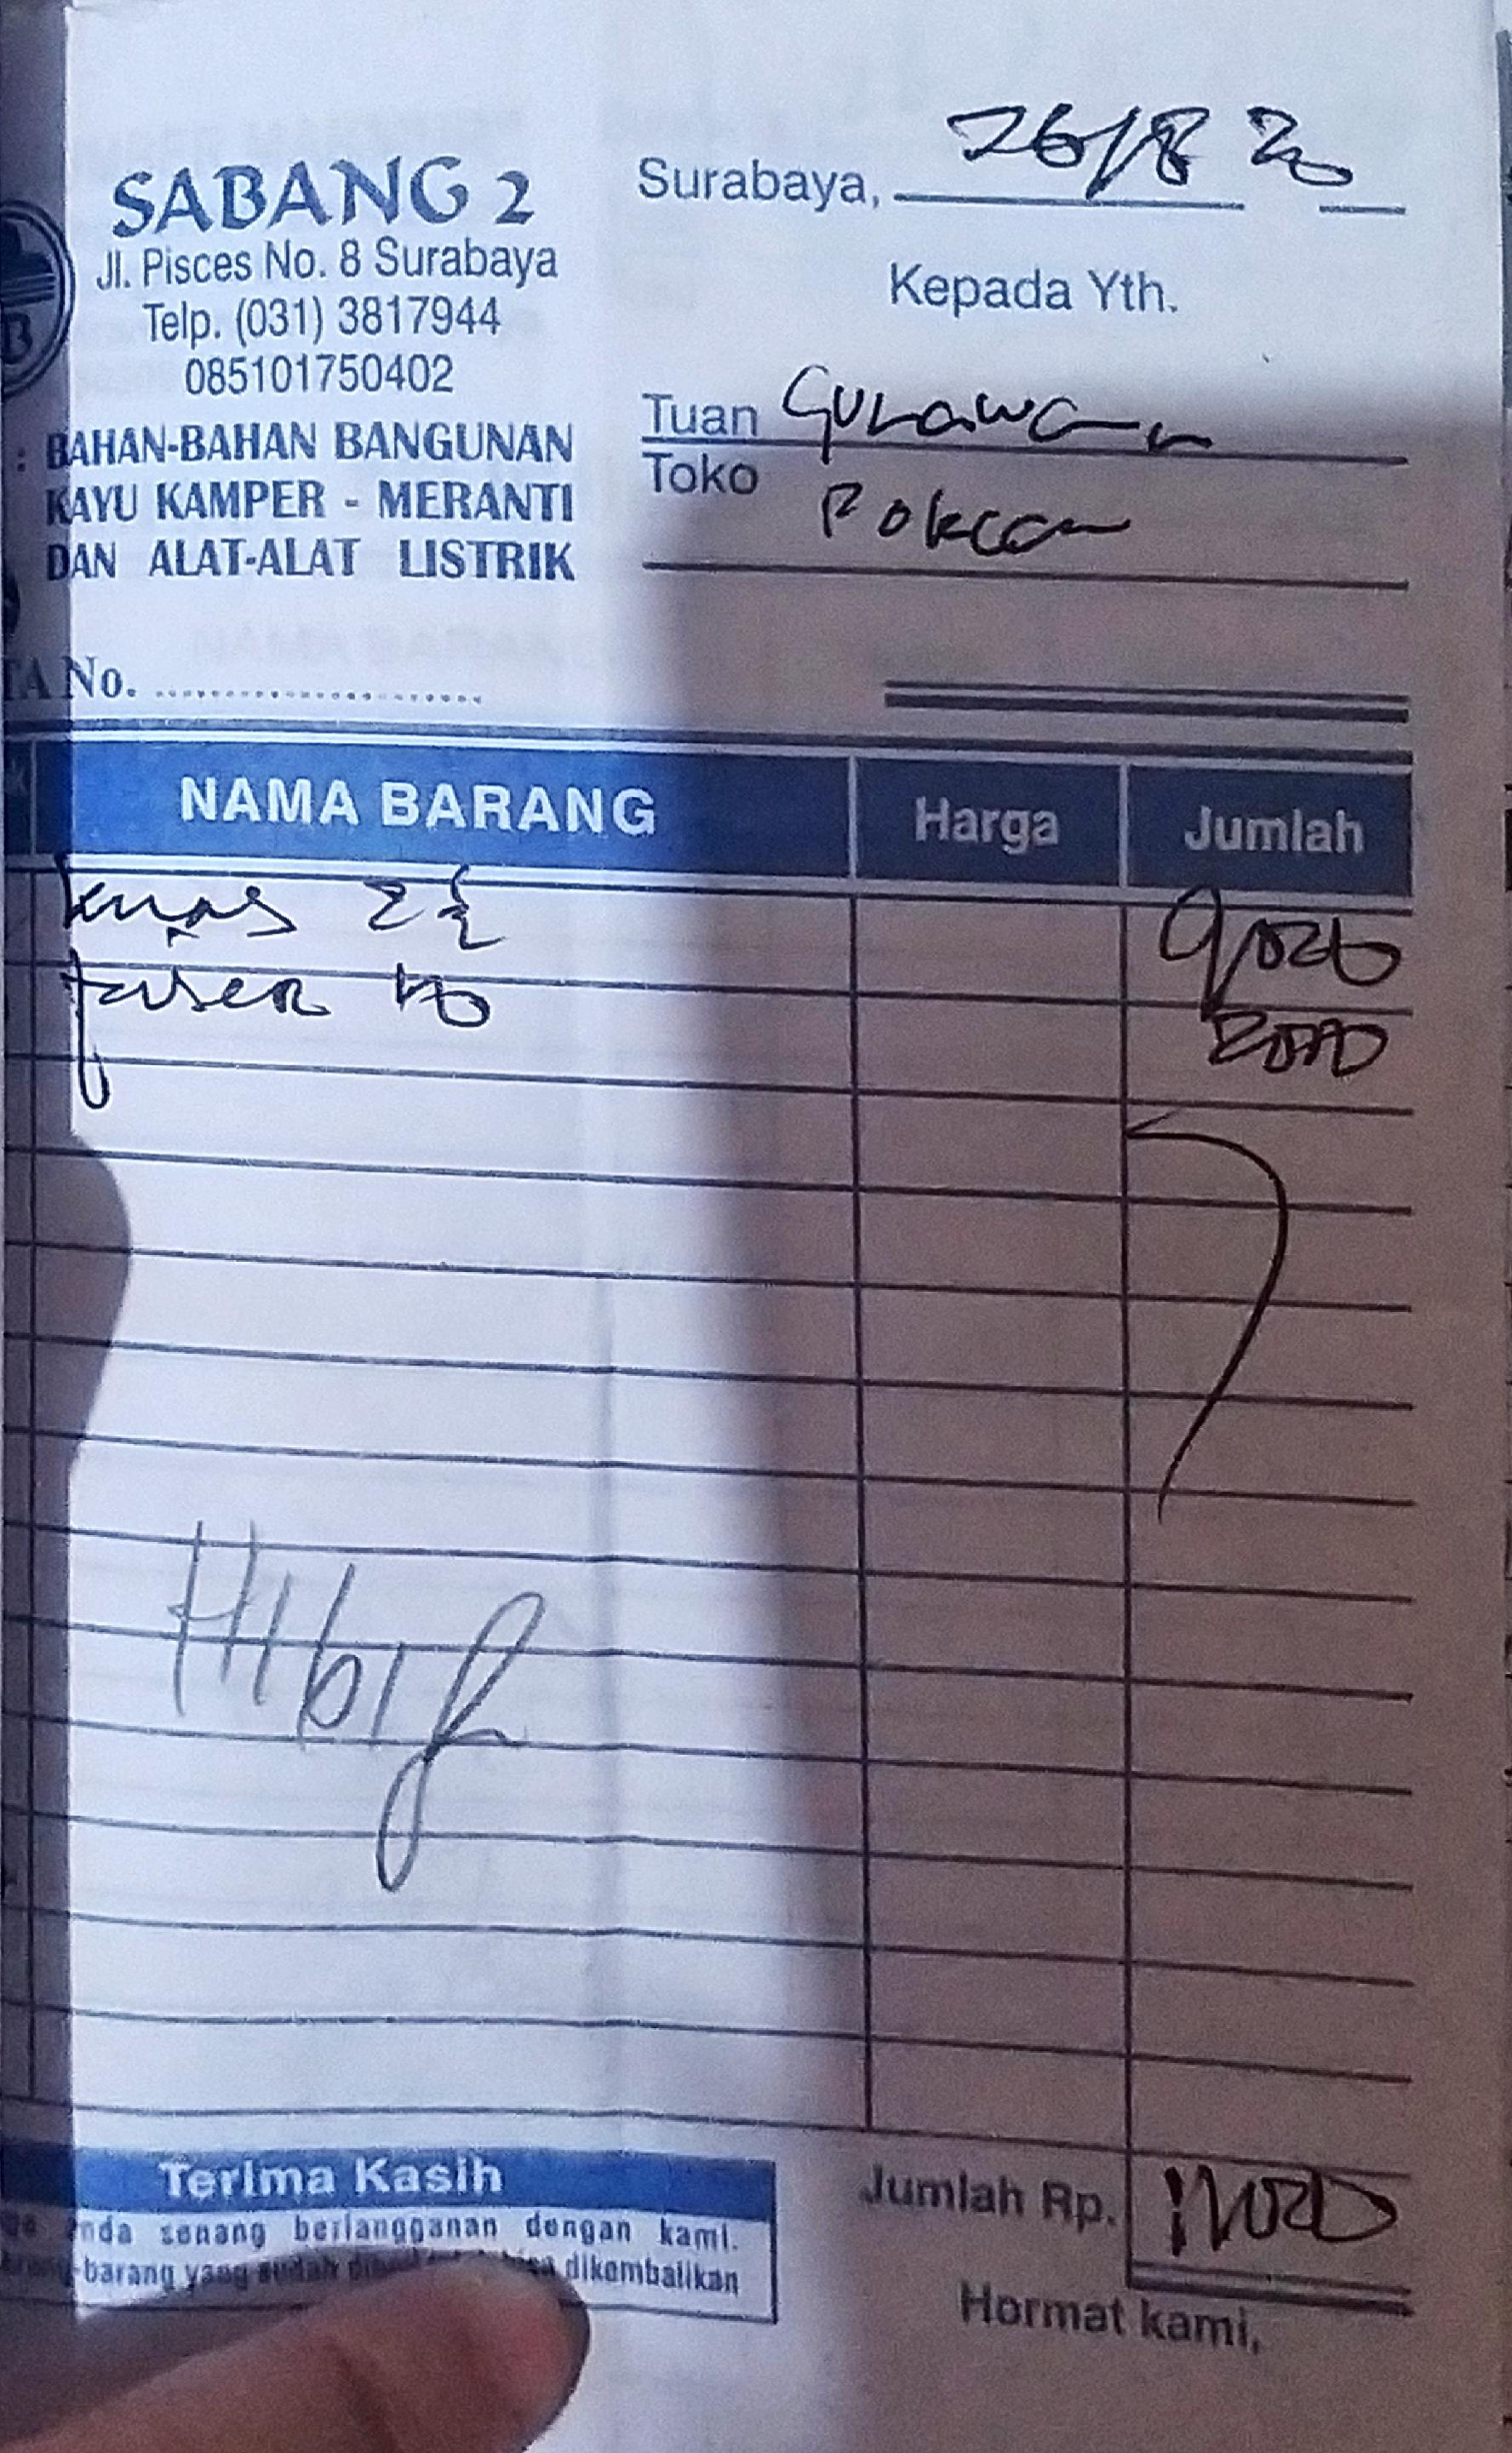 SABANG 2
Jl. Pisces No. 8 Surabaya
Telp. (031) 3817944
085101750402
: BAHAN-BAHAN BANGUNAN
KAYU KAMPER - MERANTI
DAN ALAT-ALAT LISTRIK
Surabaya, 26/8 20
Kepada Yth.
Tuan Gunawan
Toko
TA No.
NAMA BARANG Harga Jumlah
kuas 2½ 9000
2000
Terima Kasih
anda senang berlangganan dengan kami.
barang yang sudah dikembalikan
Jumlah Rp. 11000
Hormat kami,